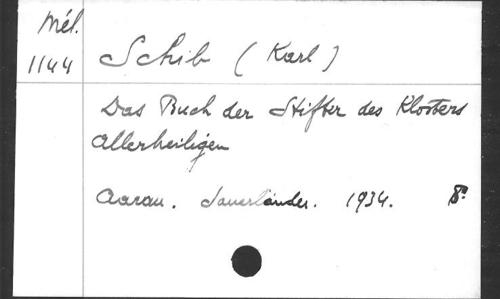 Mél.
1144
Schib (Karl)
Das Buch der Stifter des Klosters
Allerheiligen
Aarau. Sauerländer. 1934. 8°